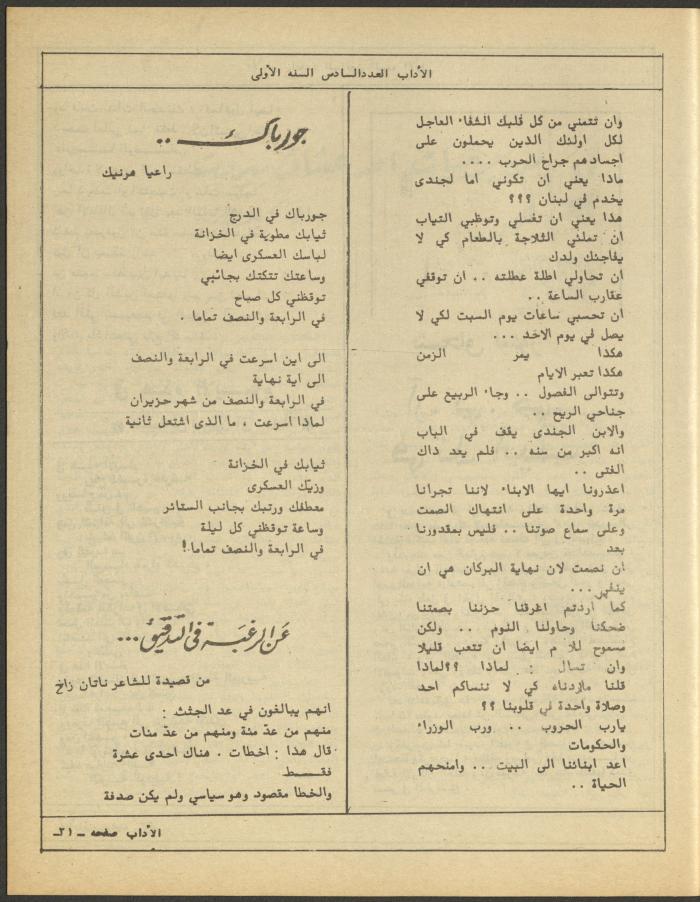 الأداب العددالسادس السنه الأولى
وان تتمني من كل قلبك الشفاء العاجل
لكل اولئك الذين يحملون على
اجسادهم جراح الحرب ....
ماذا يعني ان تكوني اما لجندى
يخدم في لبنان ؟؟؟
هذا يعني ان تغسلي وتوظبي الثياب
ان تملئي الثلاجة بالطعام كي لا
يفاجئك ولدك
ان تحاولي اطلة عطلته .. ان توقفي
عقارب الساعة ..
ان تحسبي ساعات يوم السبت لكي لا
يصل في يوم الاحد ...
هكذا يمر الزمن
هكذا تعبر الايام
وتتوالى الفصول .. وجاء الربيع على
جناحي الريح ..
والابن الجندى يقف في الباب
انه اكبر من سنه .. فلم يعد ذاك
الفتى ..
اعذرونا ايها الابناء لاننا تجرانا
مرة واحدة على انتهاك الصمت
وعلى سماع صوتنا .. فليس بمقدورنا
بعد
ان نصمت لان نهاية البركان هي ان
ينفجر ...
كما اردتم اغرقنا حزننا بصمتنا
ضحكنا وحاولنا النوم .. ولكن
مسموح للام ايضا ان تتعب قليلا
وان تسال : لماذا ؟؟لماذا
قلنا ماردناء كي لا ننساكم احد
وصلاة واحدة في قلوبنا ؟؟
يارب الحروب .. ورب الوزراء
والحكومات
اعد ابنائنا الى البيت .. وامنحهم
الحياة ..
جورباك ..
راعيا هرنيك
جورباك في الدرج
ثيابك مطوية في الخزانة
لباسك العسكرى ايضا
وساعتك تتكتك بجانبي
توقظني كل صباح
في الرابعة والنصف تماما .
الى اين اسرعت في الرابعة والنصف
الى اية نهاية
في الرابعة والنصف من شهر حزيران
لماذا اسرعت ، ما الذى اشتعل ثانية
ثيابك في الخزانة
وزيّك العسكرى
معطفك ورتبك بجانب الستائر
وساعة توقظني كل ليلة
في الرابعة والنصف تماما !
عن الرغبة في التدقيق ...
من قصيدة للشاعر ناتان زاخ
انهم يبالغون في عد الجثث :
منهم من عدّ مئة ومنهم من عدّ مئات
قال هذا : اخطات . هناك احدى عشرة
فقـــط
والخطا مقصود وهو سياسي ولم يكن صدفة
الأداب صفحه ــ ٢١ــ